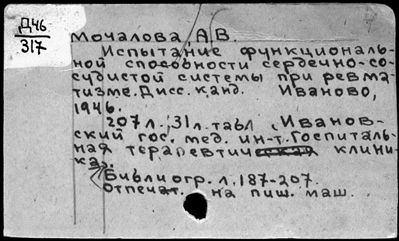 Д46
317
Мочалова, А.В.
Испытание функциональ-
ной способности сердечно-со-
судистой системы при ревма-
тизме. Дисс. канд. Иваново,
1946.
207 л., 31 л. табл. (Иванов-
ский гос. мед. ин-т. Госпиталь-
ная терапевтическая клини-
ка).
Библиогр. л. 187-207.
Отпечат. на пиш. маш.